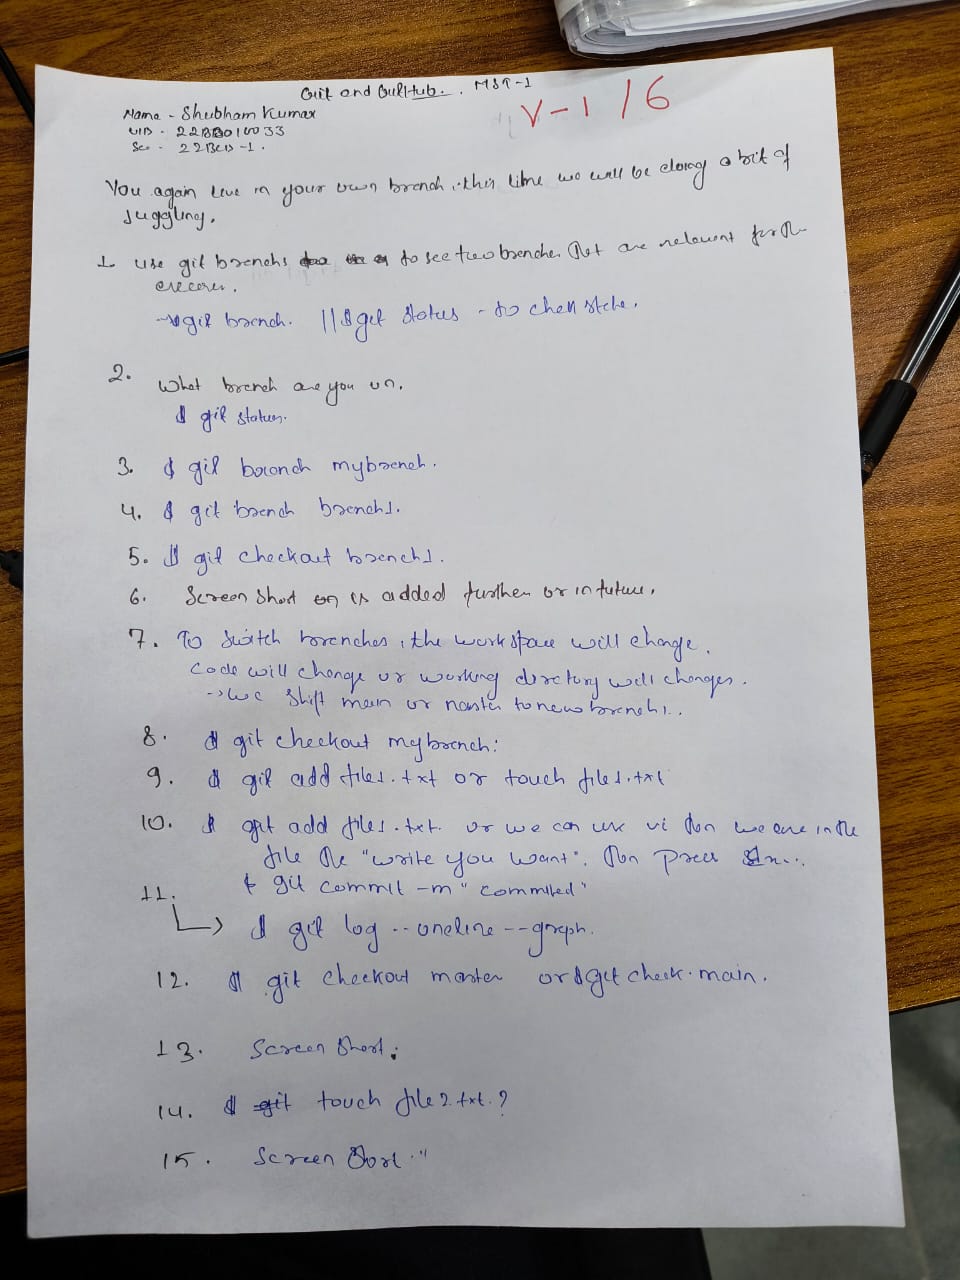 Git and GitHub. MST-1
V-1 /6
Name - Shubham Kumar
UID - 22BBO10033
Sec - 22BCD-1.
You again live in your own branch, this time we will be doing a bit of
juggling.
1 use git branchs to see two branches that are relevant for the
→ $ git branch. || $ git status - to check
2. What branch are you on.
$ git status.
3. $ git branch mybranch.
4. $ git branch branch1.
5. $ git checkout branch1.
6. Screen Short is added further or in future.
7. To switch branches, the workspace will change.
Code will change or working directory will changes.
→ we shift main or master to new branch1..
8. $ git checkout mybranch:
9. $ git add file1.txt or touch file1.txt
10. $ git add file1.txt. or we can use vi then we are in the
file the "write you want". Then press
11. $ git commit -m "commited"
↳ $ git log --oneline --graph.
12. $ git checkout master or $ git check.main.
13. Screen Short:
14. $ touch file2.txt.?
15. Screen Short."